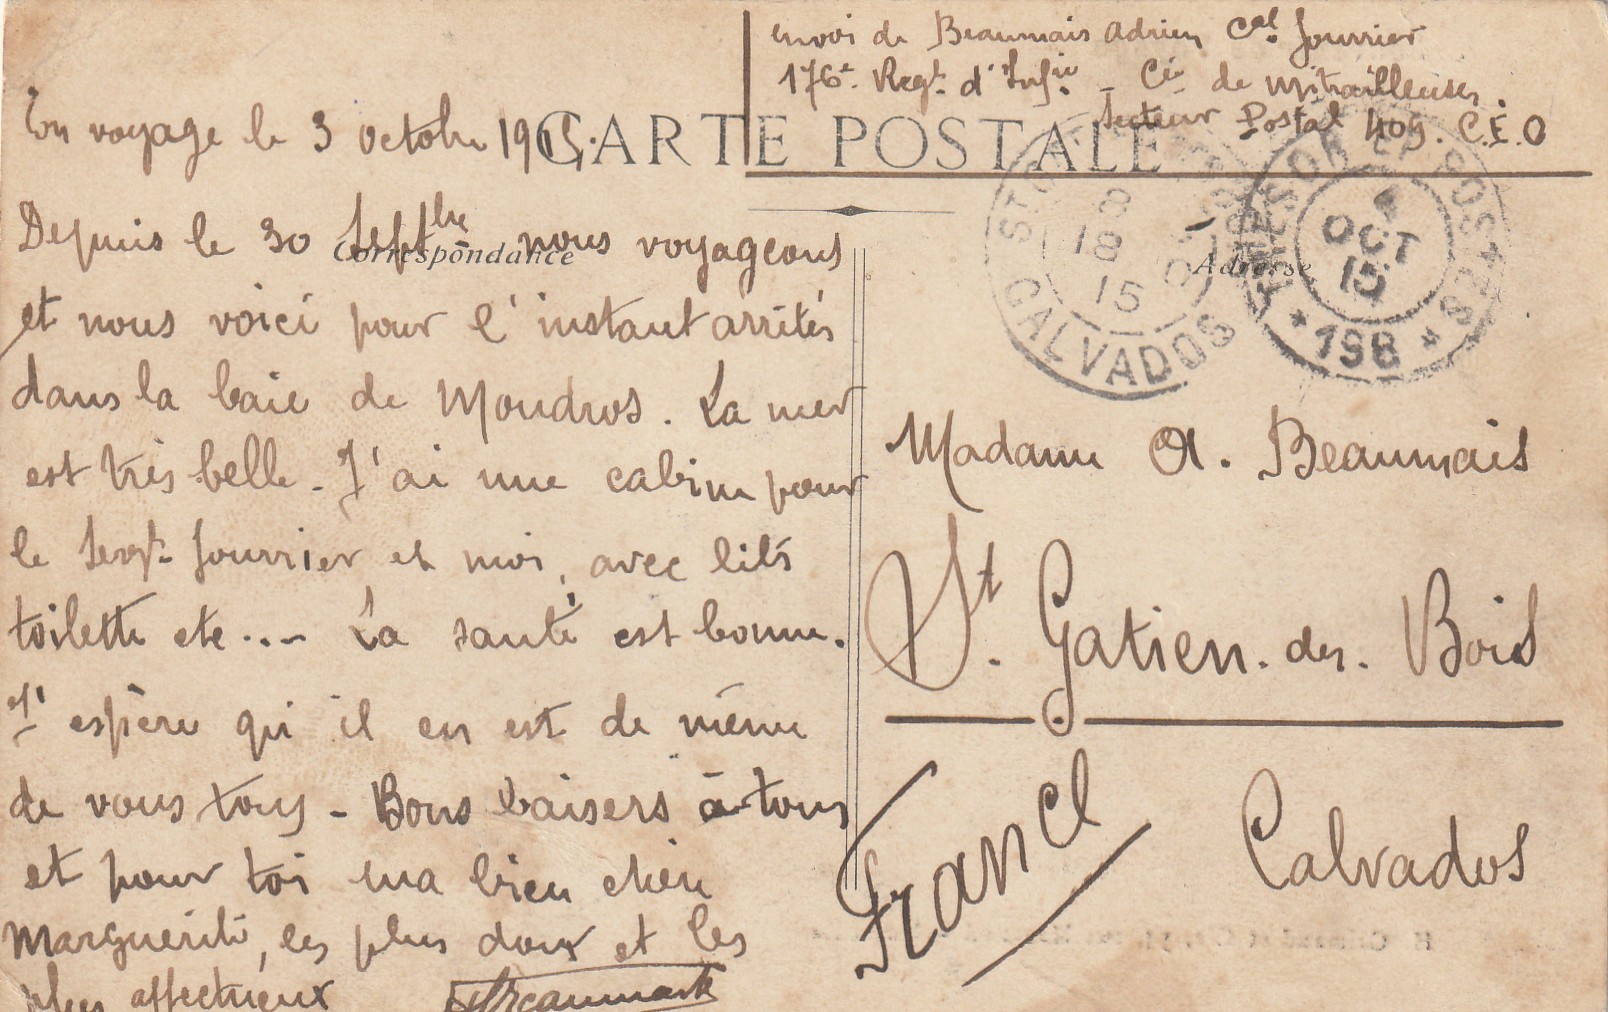 envoi de Beaumais Adrien Cal fourrier
176e Regt d'Infie - Cie de Mitrailleuses.
Secteur Postal 409. C.E.O
CARTE POSTALE
En voyage le 3 octobre 1915.
Correspondance
Depuis le 30 Septbre nous voyageons
et nous voici pour l'instant arrêtés
dans la baie de Moudros. La mer
est très belle. J'ai une cabine pour
le Sergt fourrier et moi, avec lits
toilette etc...- La santé est bonne.
J'espère qu'il en est de même
de vous tous - Bons baisers à tous
et pour toi ma bien chère
Marguerite, les plus doux et les
plus affectueux
ABeaumais
Adresse
CALVADOS
18
15
TRESOR ET POSTES
OCT
15
*198*
Madame A. Beaumais
St. Gatien. des. Bois
Calvados
France